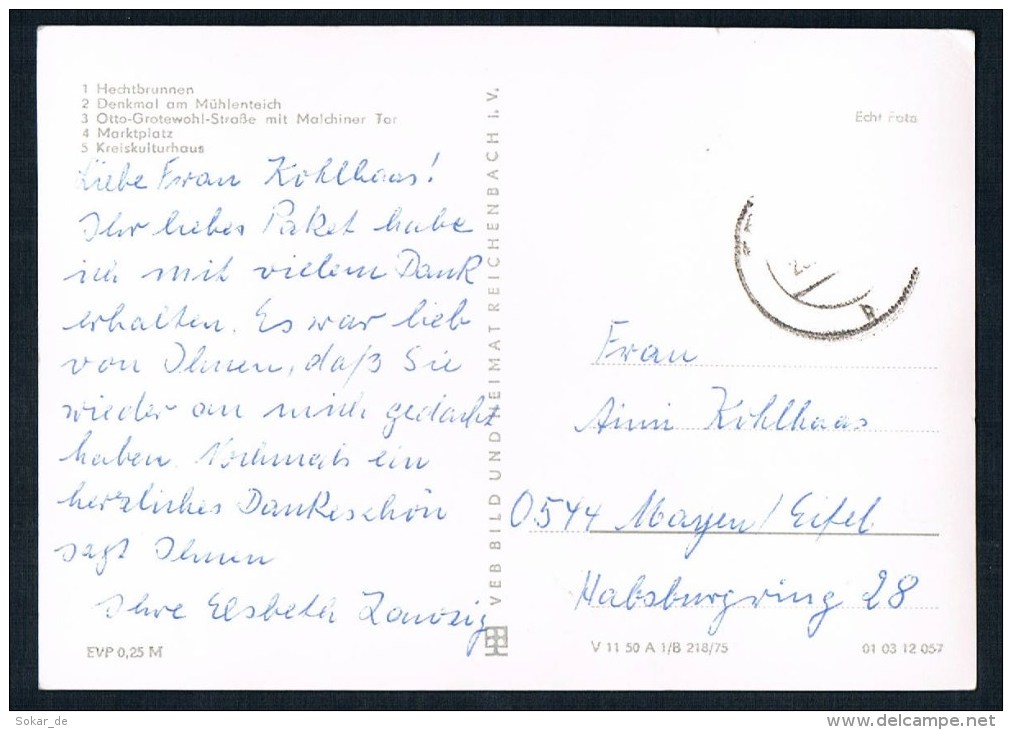 1 Hechtbrunnen
2 Denkmal am Mühlenteich
3 Otto-Grotewohl-Straße mit Malchiner Tor
4 Marktplatz
5 Kreiskulturhaus
Liebe Frau Kohlhaas!
Ihr liebes Paket habe
ich mit vielem Dank
erhalten. Es war lieb
von Ihnen, daß Sie
wieder an mich gedacht
haben. Nochmals ein
herzliches Dankeschön
sagt Ihnen
Ihre Elsbeth
EVP 0,25 M
VEB BILD UND HEIMAT REICHENBACH I. V.
Echt Foto
Frau
Kohlhaas
0544 Mayen/Eifel
Habsburgring 28
V 11 50 A 1/B 218/75
01 03 12 057
Sokar_de
http://www.delcampe.net